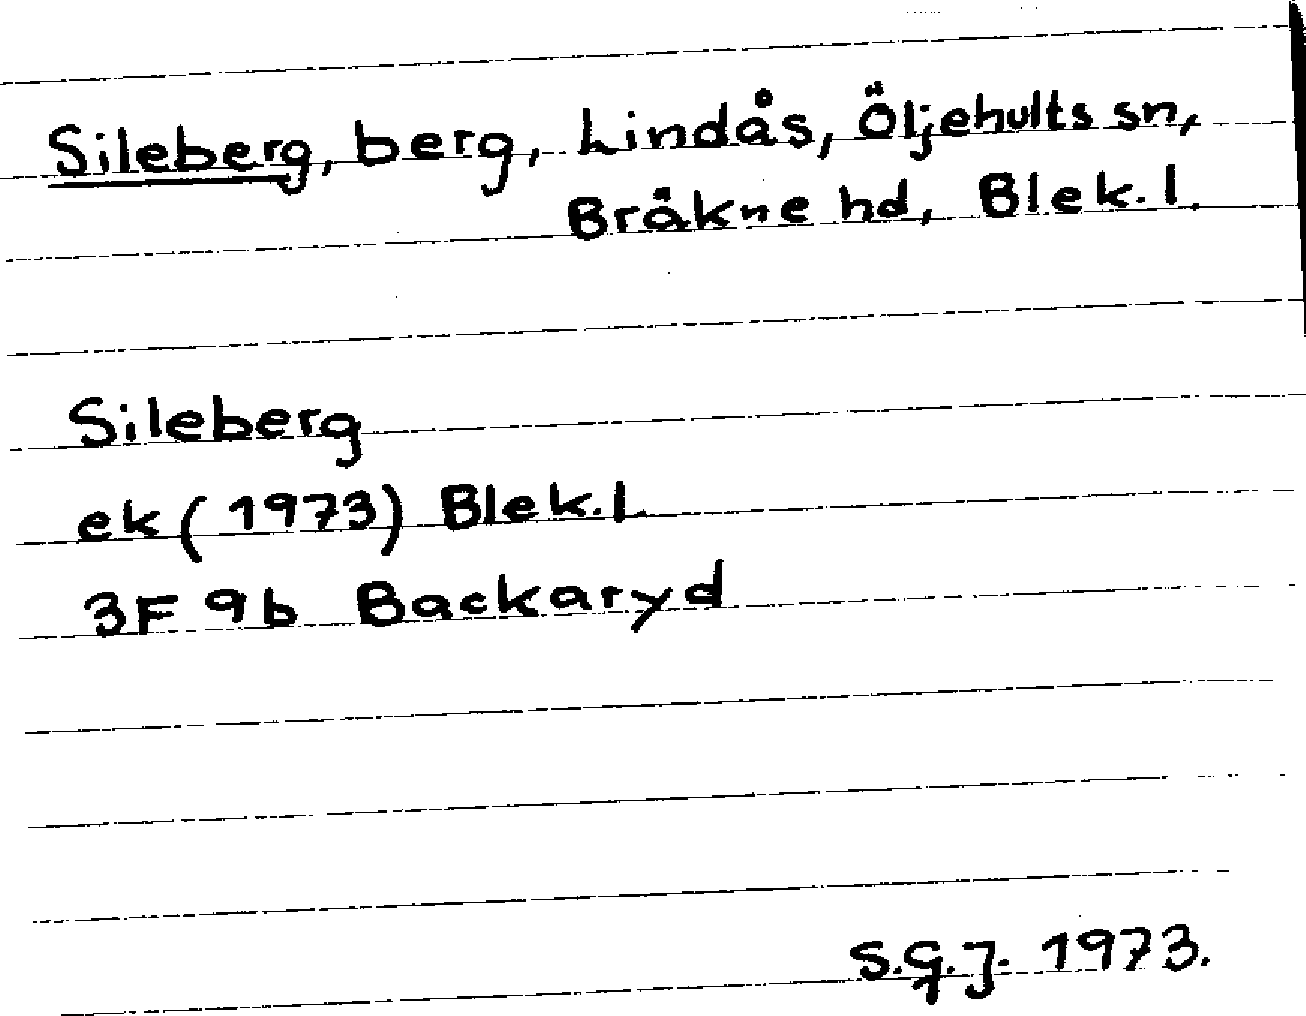 Sileberg, berg, Lindås, Öljehults sn,
Bräkne hd, Blek. l.
Sileberg
ek (1973) Blek. l.
3F 9b Backaryd
S.G.J. 1973.